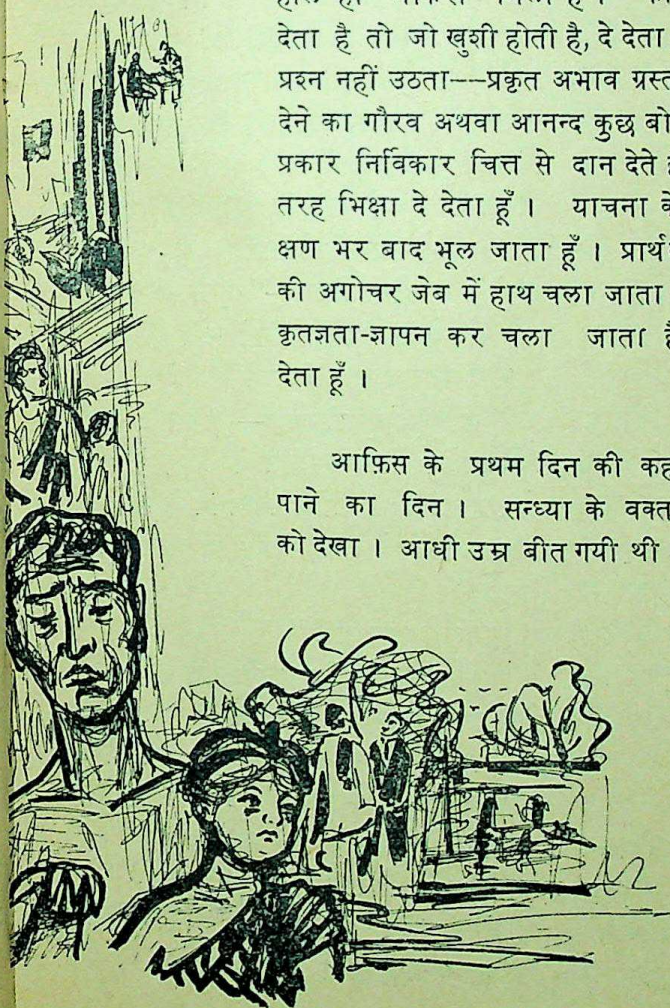 देता है तो जो खुशी होती है, दे देता
प्रश्न नहीं उठता--प्रकृत अभाव ग्रस्त
देने का गौरव अथवा आनन्द कुछ बो
प्रकार निर्विकार चित्त से दान देते
तरह भिक्षा दे देता हूँ । याचना
क्षण भर बाद भूल जाता हूँ । प्रार्थ
की अगोचर जेब में हाथ चला जाता
कृतज्ञता-ज्ञापन कर चला जाता
देता हूँ ।
आफ़िस के प्रथम दिन की कह
पाने का दिन । सन्ध्या के वक्त
को देखा । आधी उम्र बीत गयी थी